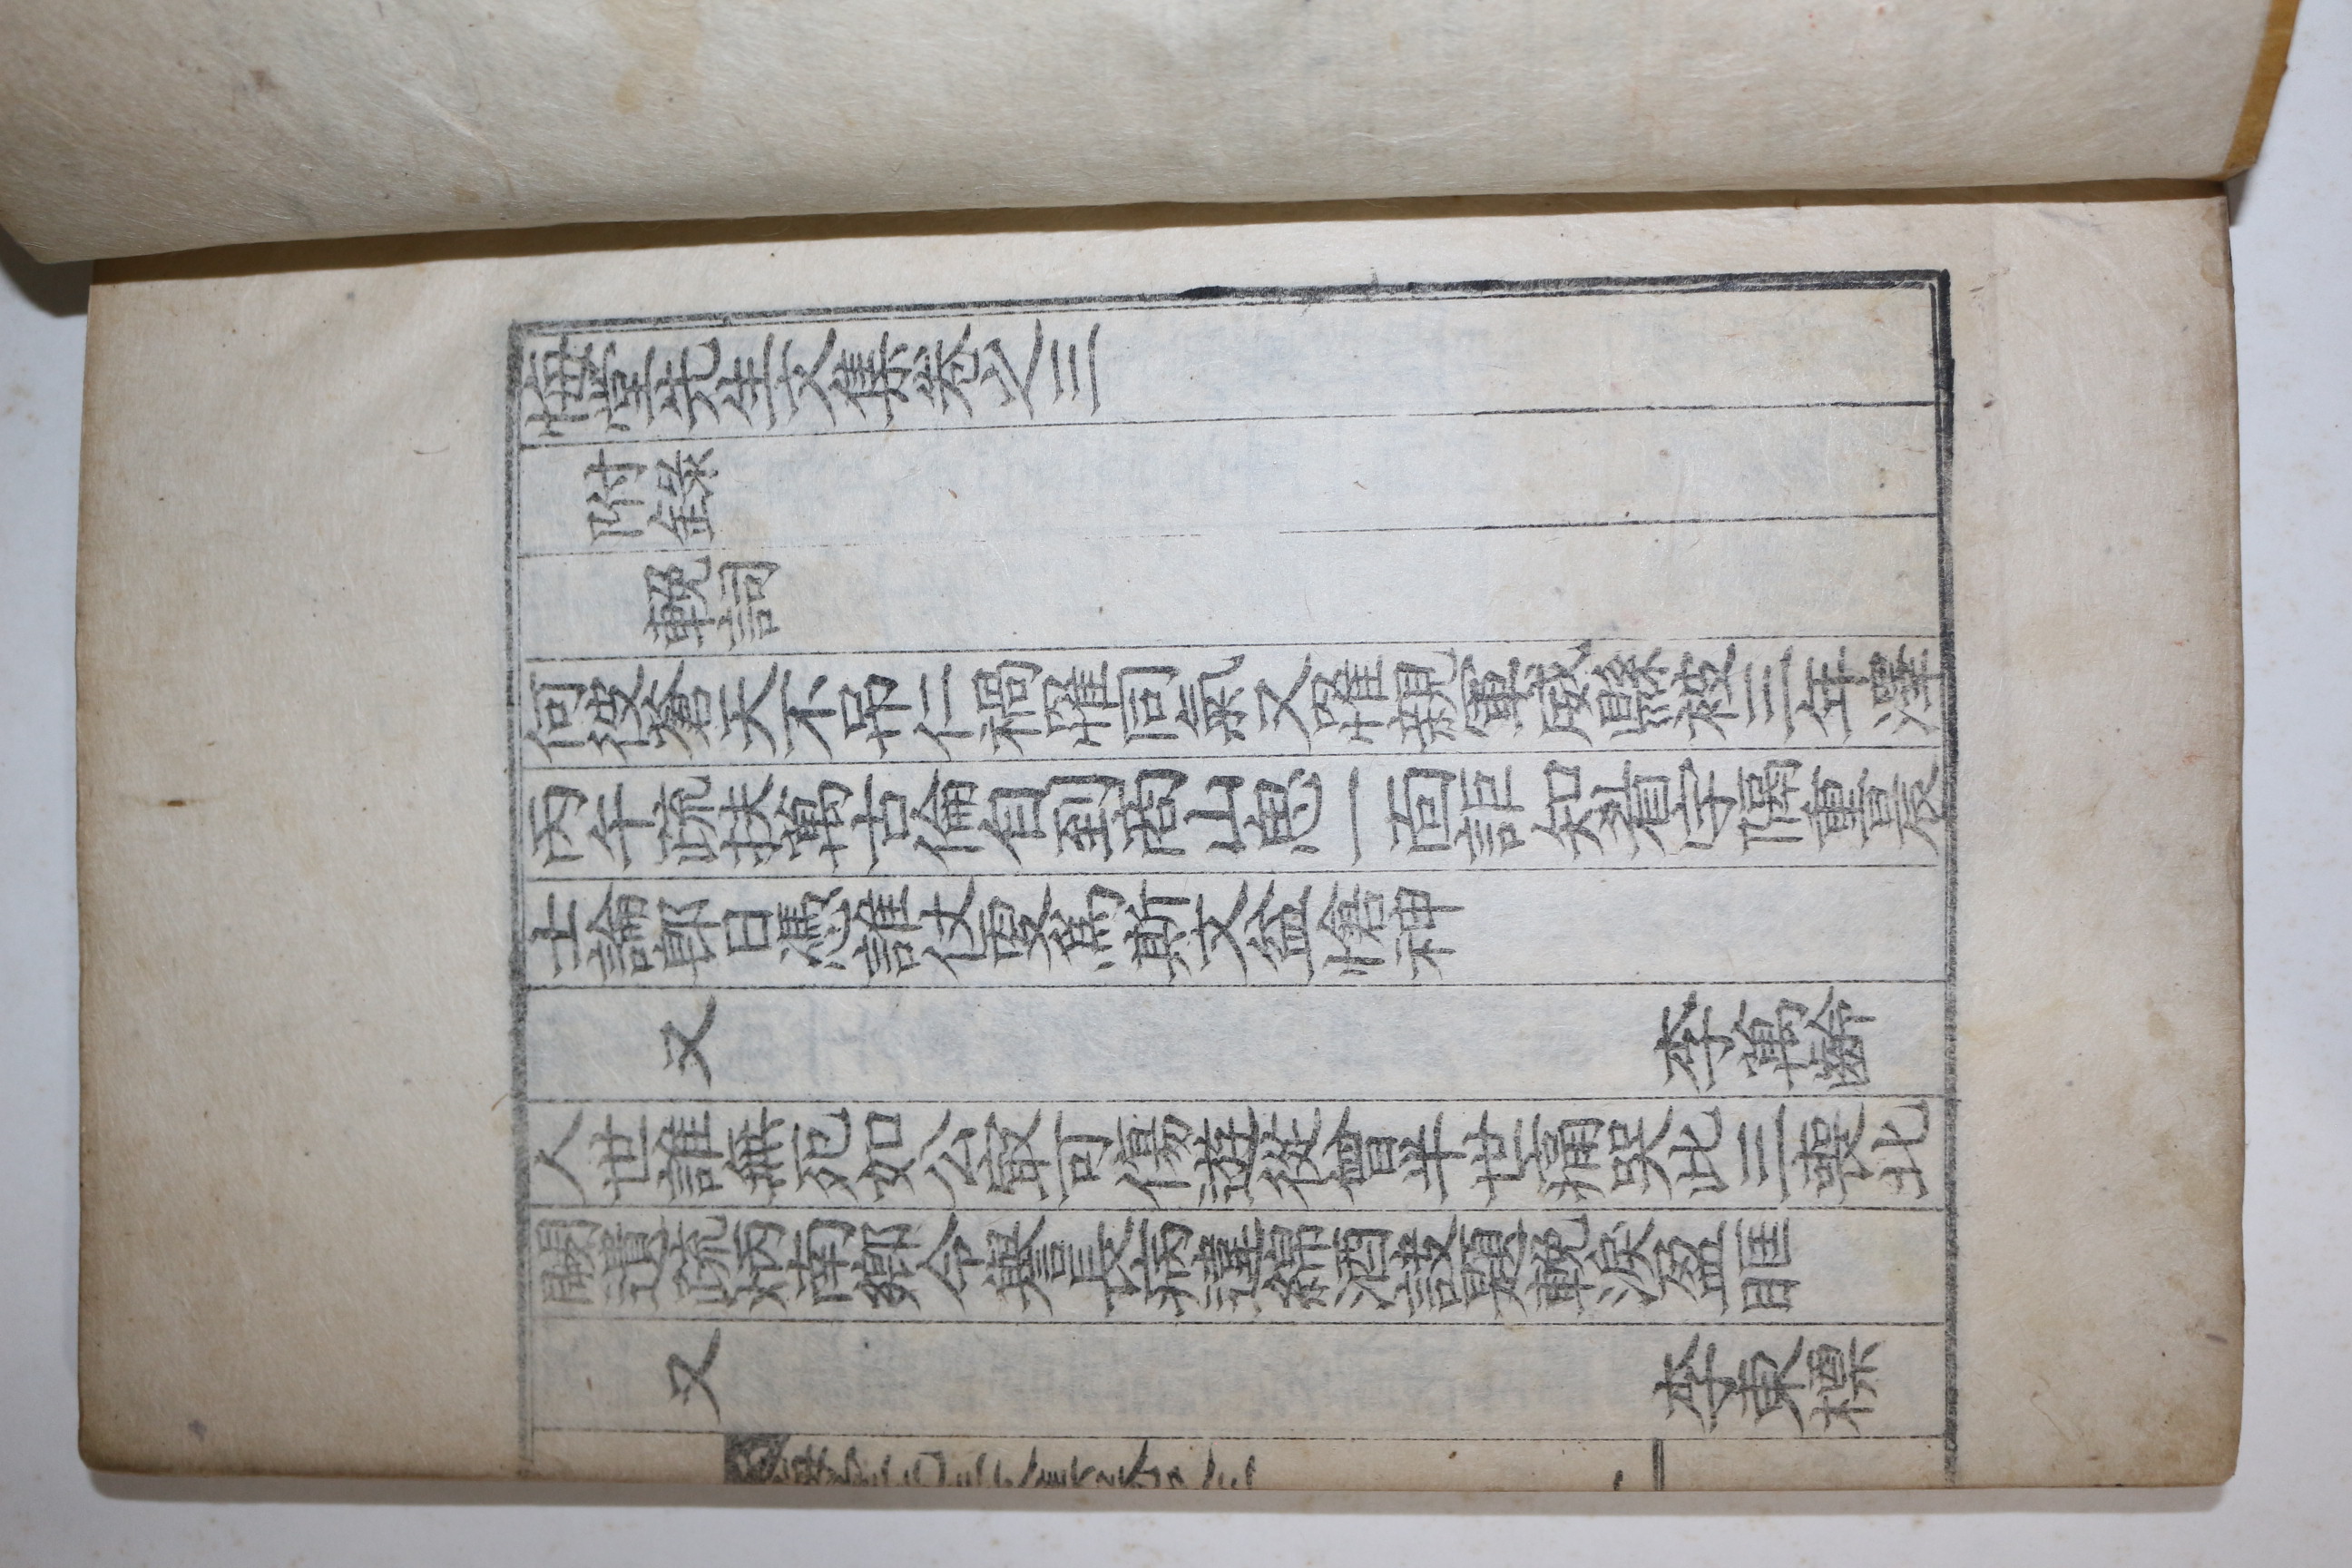 悔堂先生文集卷之三
附錄
輓詞
何彼蒼天不吊仁禍罹同氣又罹親軍威縣被三年澤
丙午疏扶萬古倫自到商山思一面詎知睂宇隔重晨
士論即日憑誰仗更爲斯文益愴神
又 李萬齡
人世誰無死如公最可傷遊從曾半世痛哭此三喪北
闕遺疏炳南鄉令譽長病違綿酒設題輓淚盈眶
又 李東標